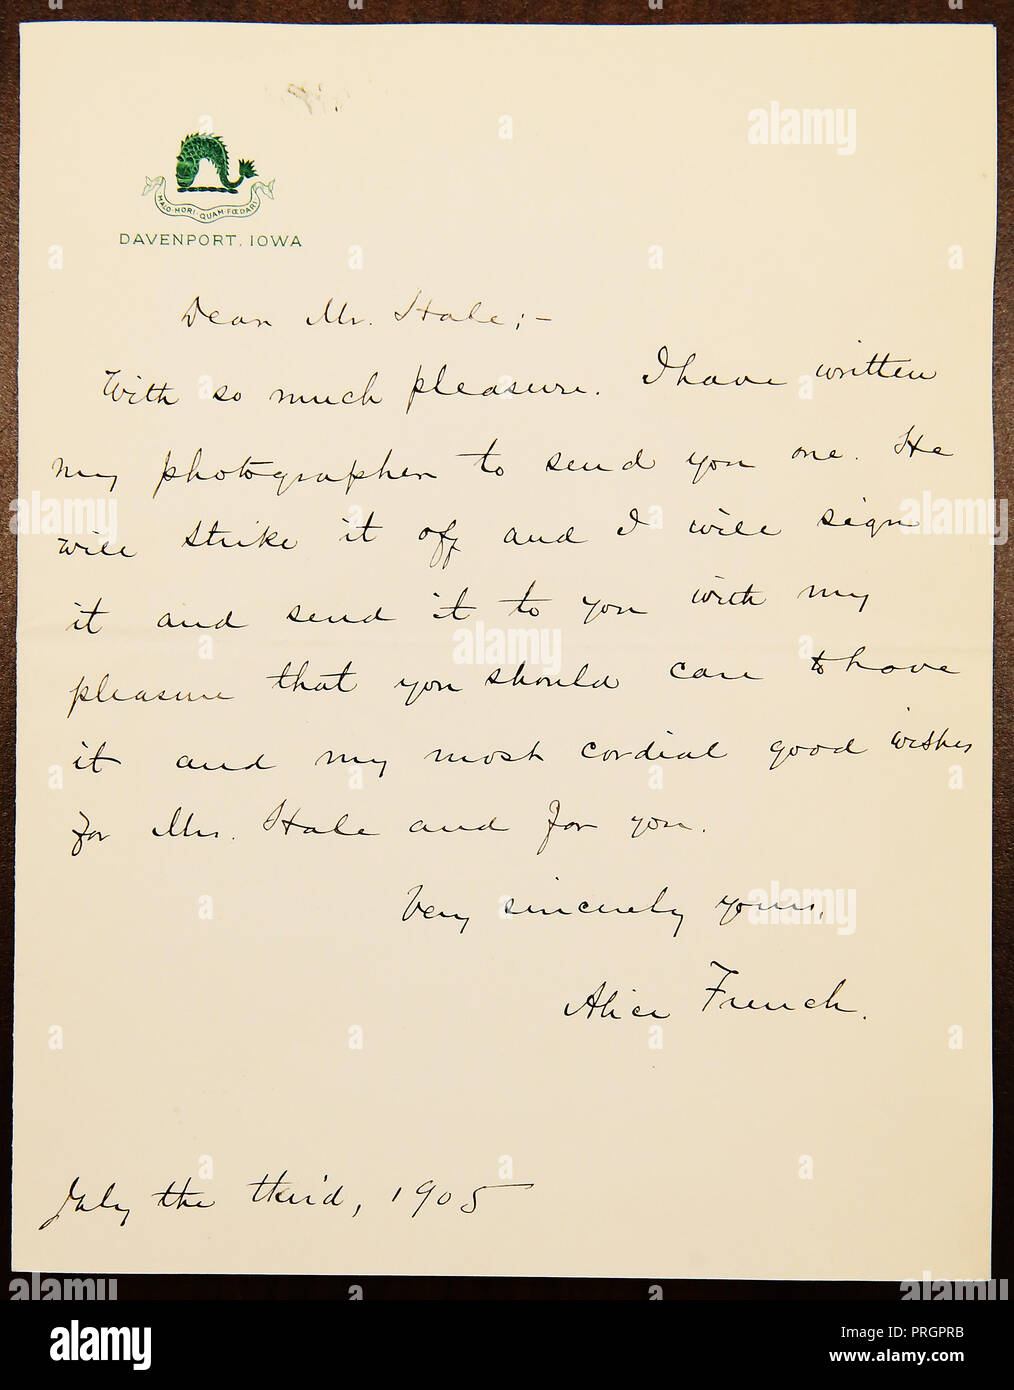 MALO · MORI · QUAM · FŒDARI
DAVENPORT, IOWA
Dear Mr. Hale;-
With so much pleasure. I have written
my photographer to send you one. He
will strike it off and I will sign
it and send it to you with my
pleasure that you should care to have
it and my most cordial good wishes
for Mrs. Hale and for you.
Very sincerely yours,
Alice French.
July the third, 1905
alamy
PRGPRB
www.alamy.com